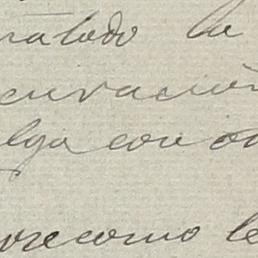 ratado la
curación
lga con o
ore como le